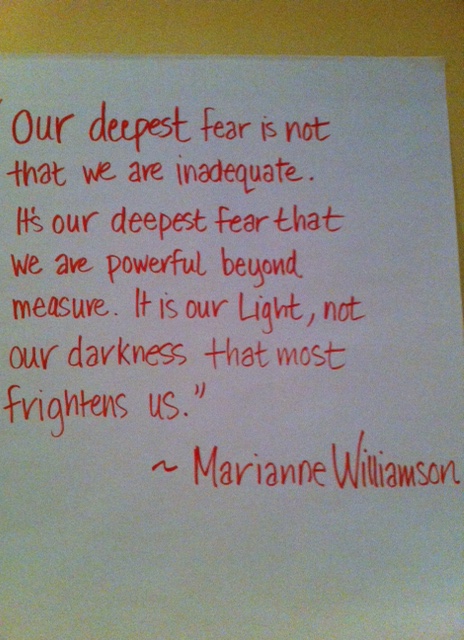 "Our deepest fear is not
that we are inadequate.
It's our deepest fear that
we are powerful beyond
measure. It is our Light, not
our darkness that most
frightens us."
~ Marianne Williamson